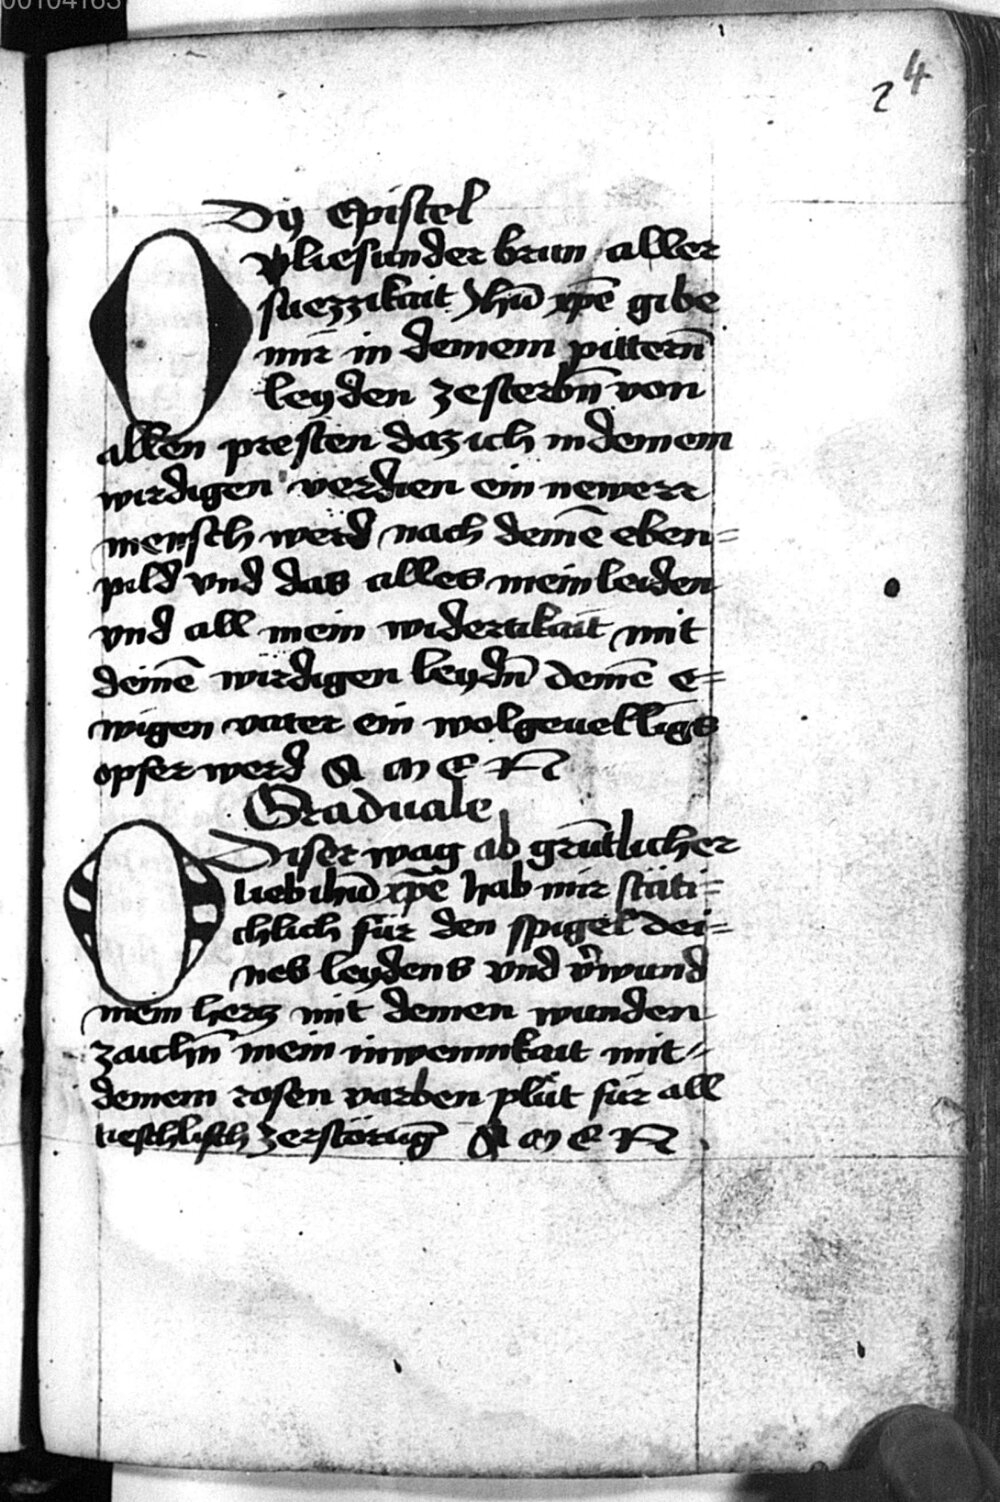 00104163
2 4
Dy Epistel
O vliesunder brun aller
suezzikait Jhu xpe gibe
mir in deinem pittern
leyden ze sterbn von
allen presten daz ich in deinem
wirdigen verdien ein newerr
mensch werd nach deine eben=
pild vnd das alles mein leiden
vnd all mein widertikait mit
deine wirdigen leydn deine e=
wigen vater ein wolgeuelligs
opfer werd A M E N
Graduale
O Diser wag ab gruntlicher
lieb ihu xpe hab mir stäti=
chlich für den spigel dei=
nes leydens vnd vwund
mein hertz mit deinen wunden
zaichn mein inwennikait mit=
deinem rosen varben plut für all
zerstörug A M E N